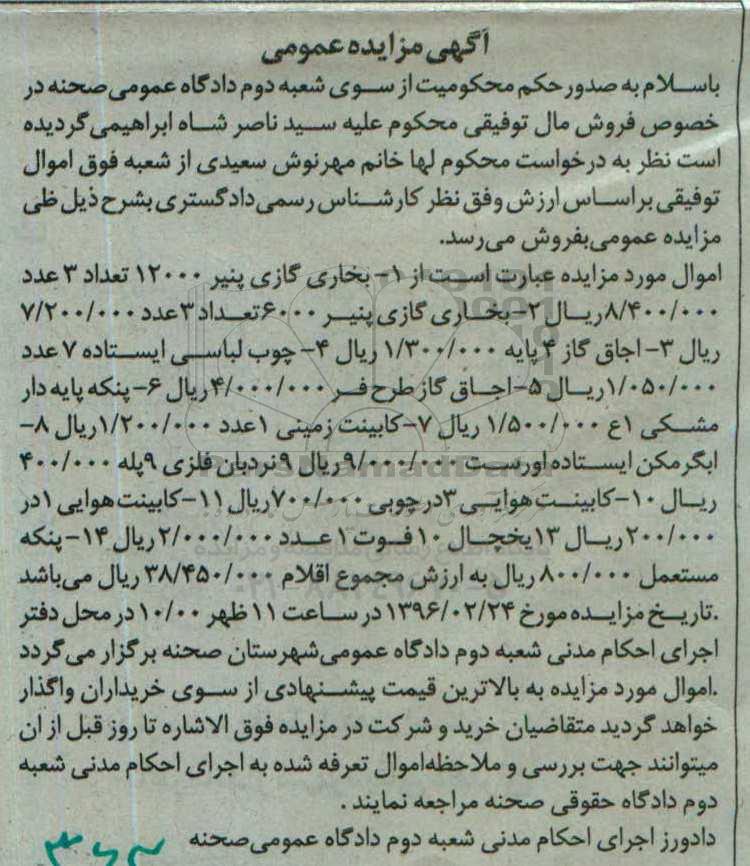 آگهی مزایده عمومی
باسلام به صدور حکم محکومیت از سوی شعبه دوم دادگاه عمومی صحنه در
خصوص فروش مال توفیقی محکوم علیه سید ناصر شاه ابراهیمی گردیده
است نظر به درخواست محکوم لها خانم مهرنوش سعیدی از شعبه فوق اموال
توفیقی براساس ارزش وفق نظر کارشناس رسمی دادگستری بشرح ذیل طی
مزایده عمومی بفروش می رسد.
اموال مورد مزایده عبارت است از ۱- بخاری گازی پنیر ۱۲۰۰۰ تعداد ۳ عدد
۸/۴۰۰/۰۰۰ ریال ۲- بخاری گازی پنیر ۶۰۰۰ تعداد ۳ عدد ۷/۲۰۰/۰۰۰
ریال ۳- اجاق گاز ۴ پایه ۱/۳۰۰/۰۰۰ ریال ۴- چوب لباسی ایستاده ۷ عدد
۱/۰۵۰/۰۰۰ ریال ۵- اجاق گاز طرح فر ۴/۰۰۰/۰۰۰ ریال ۶- پنکه پایه دار
مشکی ۱ع ۱/۵۰۰/۰۰۰ ریال ۷- کابینت زمینی ۱عدد ۱/۲۰۰/۰۰۰ ریال ۸-
ابگرمکن ایستاده اورست ۹/۰۰۰/۰۰۰ ریال ۹ نردبان فلزی ۹پله ۴۰۰/۰۰۰
ریال ۱۰- کابینت هوایی ۳در چوبی ۷۰۰/۰۰۰ ریال ۱۱- کابینت هوایی ۱در
۲۰۰/۰۰۰ ریال ۱۳ یخچال ۱۰ فوت ۱ عدد ۲/۰۰۰/۰۰۰ ریال ۱۴- پنکه
مستعمل ۸۰۰/۰۰۰ ریال به ارزش مجموع اقلام ۳۸/۴۵۰/۰۰۰ ریال می باشد
.تاریخ مزایده مورخ ۱۳۹۶/۰۲/۲۴ در ساعت ۱۱ ظهر ۱۰/۰۰ در محل دفتر
اجرای احکام مدنی شعبه دوم دادگاه عمومی شهرستان صحنه برگزار می گردد
.اموال مورد مزایده به بالاترین قیمت پیشنهادی از سوی خریداران واگذار
خواهد گردید متقاضیان خرید و شرکت در مزایده فوق الاشاره تا روز قبل از ان
میتوانند جهت بررسی و ملاحظه اموال تعرفه شده به اجرای احکام مدنی شعبه
دوم دادگاه حقوقی صحنه مراجعه نمایند .
دادورز اجرای احکام مدنی شعبه دوم دادگاه عمومی صحنه
ParsNamadData